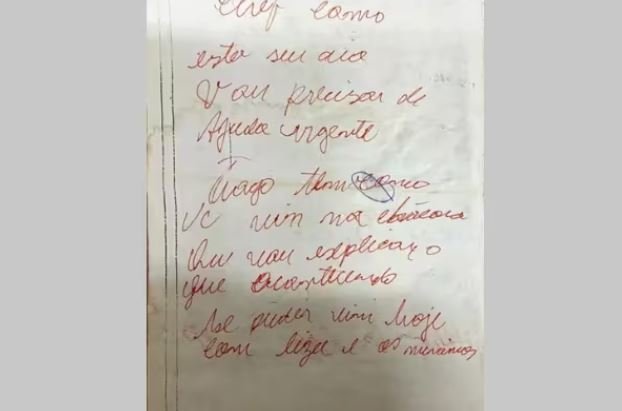 como
esta seu dia
Vou precisar de
Ajuda urgente
Tiago tem como
vc vim na
que vou explicar o
que acontecendo
se puder vim hoje
com e os meninos